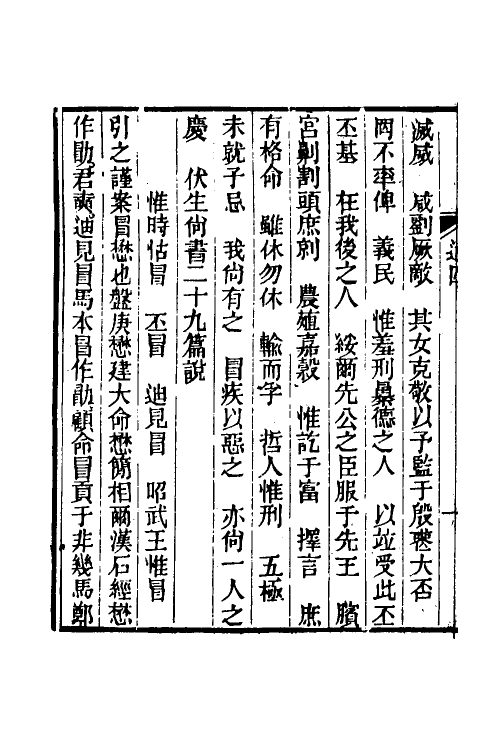 滅威　咸劉厥敵　其女克敬以予監于殷喪大否
罔不率俾　義民　惟羞刑暴德之人　以竝受此丕
丕基　在我後之人　綏爾先公之臣服于先王　臏
宮劓割頭庶剠　農殖嘉穀　惟訖于富　擇言　庶
有格命　雖休勿休　輸而孚　哲人惟刑　五極
未就予忌　我尙有之　冒疾以惡之　亦尙一人之
慶　伏生尙書二十九篇說
惟時怙冒　丕冒　迪見冒　昭武王惟冒
引之謹案冒懋也盤庚懋建大命懋簡相爾漢石經懋
作勖君奭迪見冒馬本冒作勖顧命冒貢于非幾馬鄭